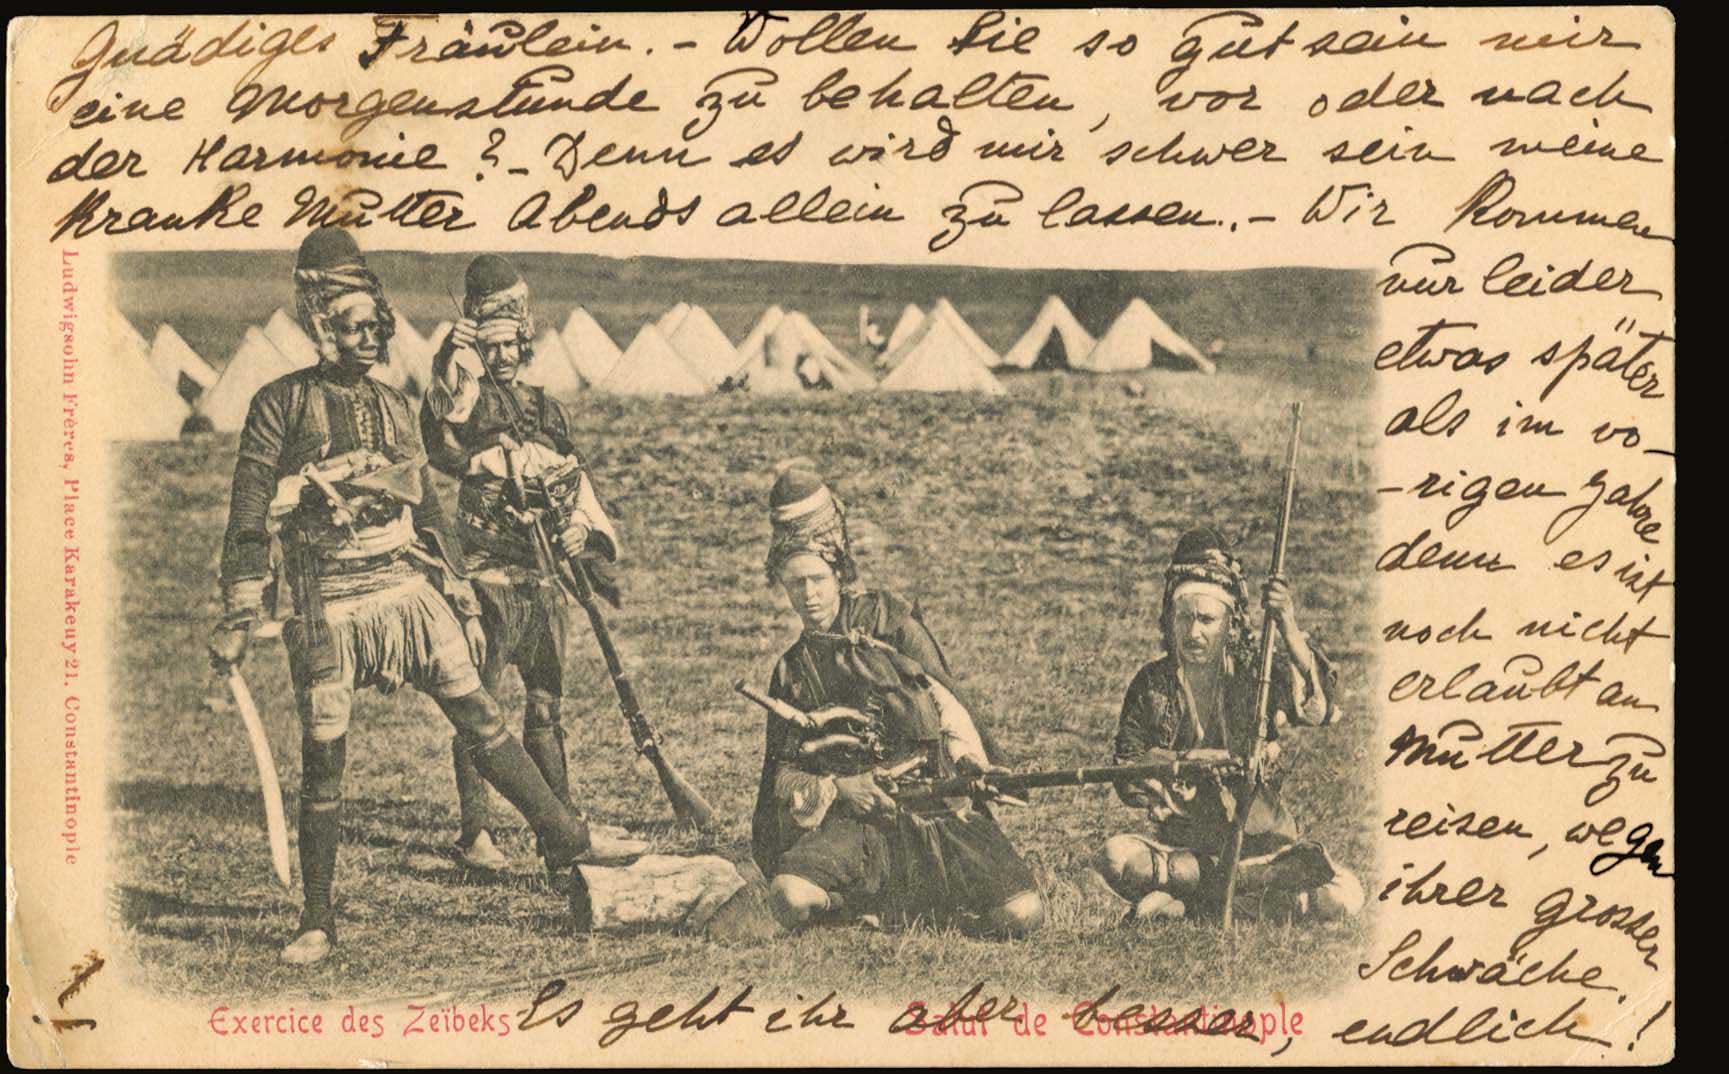 Gnädiges Fräulein. - Wollen Sie so gut sein mir
eine Morgenstunde zu behalten, vor oder nach
der Harmonie? - Denn es wird mir schwer sein meine
Kranke Mutter Abends allein zu lassen. - Wir Kommen
nur leider
etwas später
als im vo-
-rigen Jahre
denn es ist
noch nicht
erlaubt an
Mutter zu
reisen, wegen
ihrer grossen
Schwäche.
Es geht ihr aber besser, endlich!
Ludwigsohn Frères, Place Karakeuy 21. Constantinople
Exercice des Zeïbeks
Salut de Constantinople